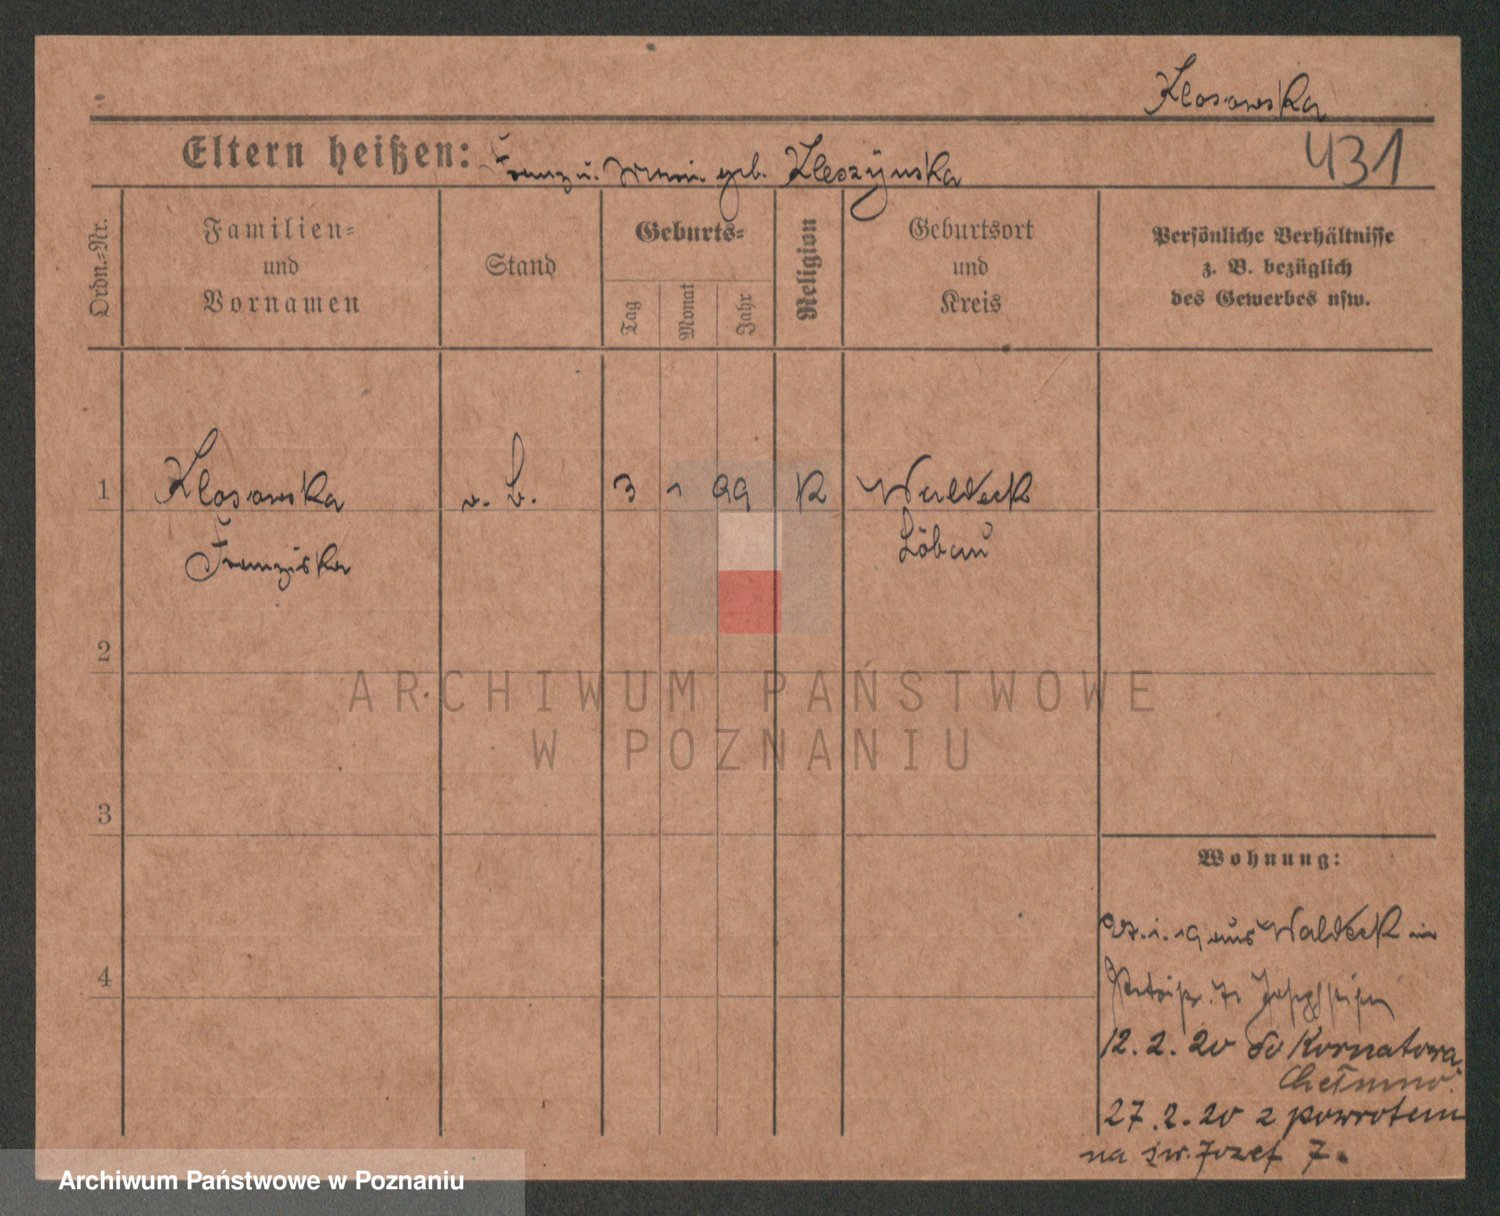 Klosowska
Eltern heißen: Franz u. geb. Kleszÿnska
431
Ordn.-Nr.
Familien-
und
Vornamen
Stand
Geburts-
Tag
Monat
Jahr
Religion
Geburtsort
und
Kreis
Persönliche Verhältnisse
z. B. bezüglich
des Gewerbes usw.
1 Klosowska o. B. 3 1 99 K Waldeck
Franziska Löbau
2
ARCHIWUM PAŃSTWOWE
W POZNANIU
3
Wohnung:
1. 19 aus Waldeck in
4
12. 2. 20 do Kornatowa
Chełmno.
27. 2. 20 z powrotem
na św. Józef 7.
Archiwum Państwowe w Poznaniu